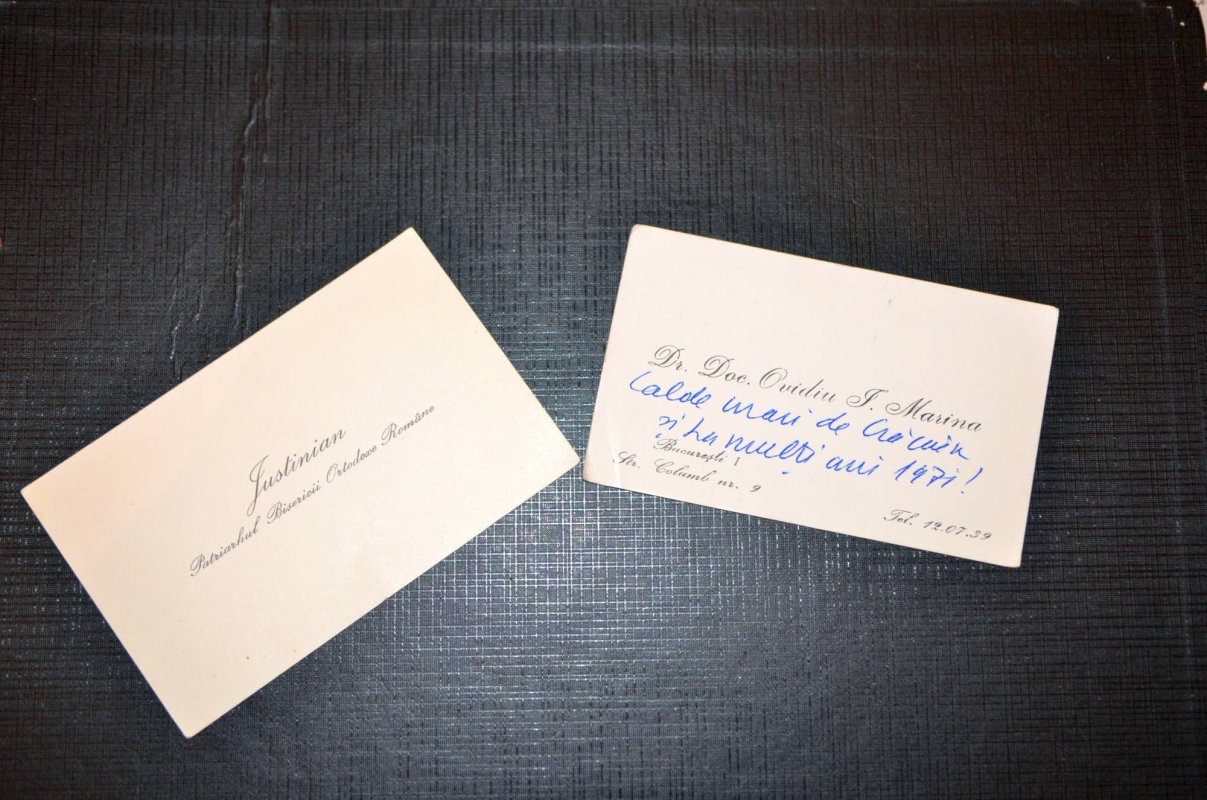 Justinian
Patriarhul Bisericii Ortodoxe Române
Dr. Doc. Ovidiu I. Marina
Calde urări de Crăciun
și La mulți ani 1971!
București 1
Str. Columb nr. 9
Tel. 12.07.39